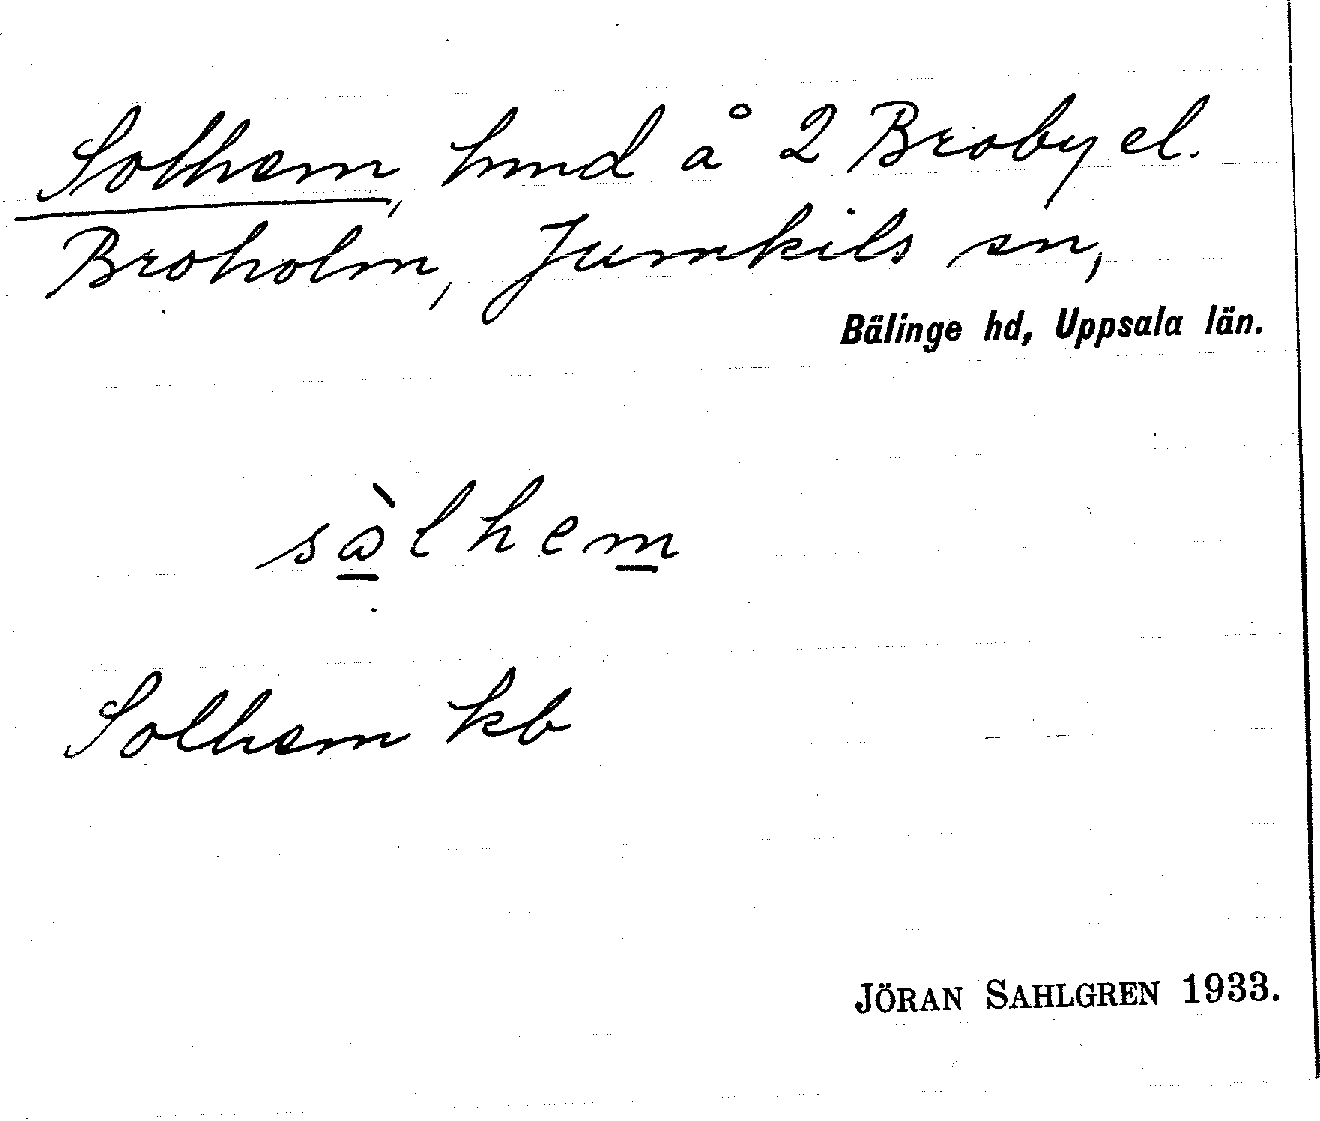 Solhem, hmd å 2 Broby el.
Broholm, Jumkils sn,
Bälinge hd, Uppsala län.
sὼlhem
Solhem kb
JÖRAN SAHLGREN 1933.